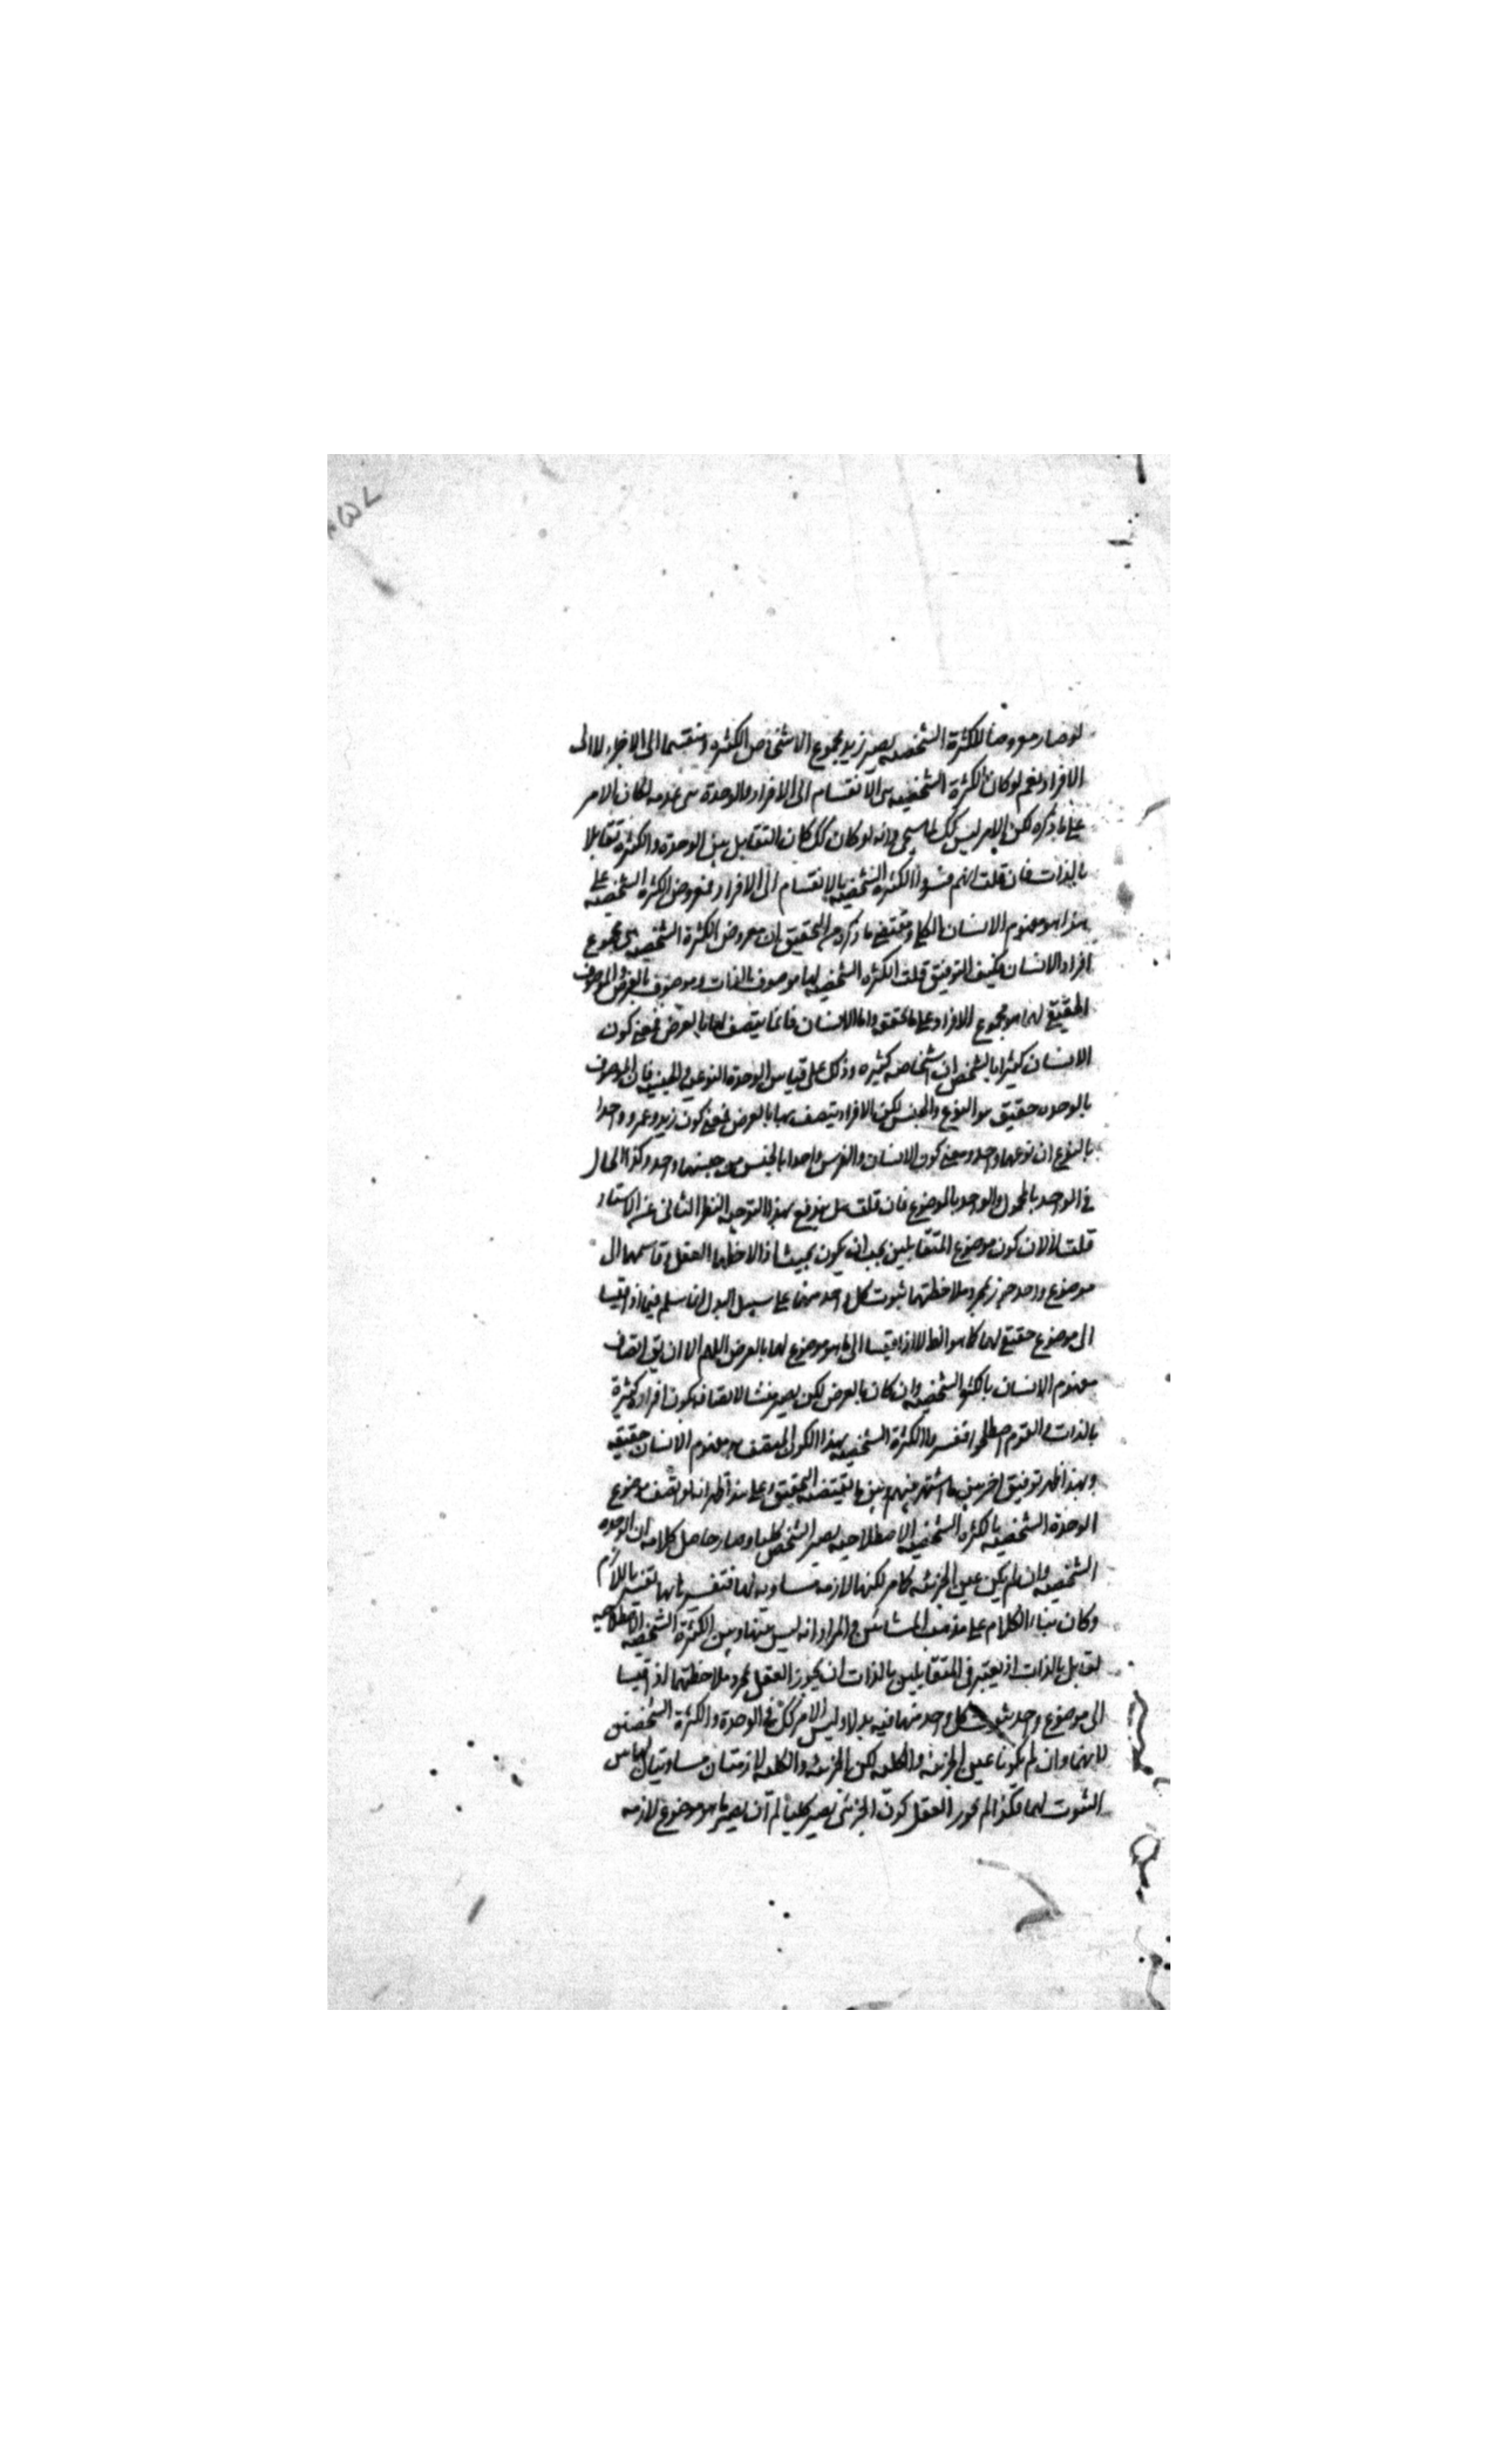 لو صار معروضا للكثرة الشخصيه يصير زيد مجموع الاشخاص الكثيره ومنقسما الى الاجزاء لا الى
الافراد نعم لو كان الكثرة الشخصيه هى الانقسام الى الافراد والوحدة هى عدمه لكان الامر
على ما ذكره لكن الامر ليس كك لما سيجى وانه لو كان كك كان التقابل بين الوحدة والكثرة تقابلا
بالذات فان قلت انهم فسروا الكثرة الشخصيه بالانقسام الى الافراد فمعروض الكثرة الشخصيه على
هذا هو مفهوم الانسان الكلى ومقتضى ما ذكره من التحقيق ان معروض الكثرة الشخصيه هى مجموع
افراد الانسان فكيف التوفيق قلت الكثره الشخصيه لها موصوف بالذات وموصوف بالعرض فالموصوف
الحقيقى لها هو مجموع الافراد على ما تحقق واما الانسان فانما يتصف بها بالعرض فمعنى كون
الانسان كثيرا بالشخص ان اشخاصه كثيره وذلك على قياس الوحدة النوعيه والجنسيه فان الموصوف
بالوحده حقيقة هو النوع والجنس لكن الافراد يتصف بها بالعرض فمعنى كون زيد وعمرو واحدا
بالنوع ان نوعهما واحد ومعنى كون الانسان والفرس واحدا بالجنس ان جنسهما واحد وكذا الحال
فى الواحد بالمحمول والواحد بالموضوع فان قلت هل يندفع بهذا التوجيه النظر الثانى عن الاستاد
قلت لا لان كون موضوع المتقابلين يجب ان يكون بحيث اذا لاحظهما العقل وقاسهما الى
موضوع واحد جوز بمجرد ملاحظتهما ثبوت كل واحد منهما على سبيل البدل انما سلم فيما اذا قيسا
الى موضوع حقيقى لهما كما هو الظ لا اذا قيسا الى ما هو موضوع لهما بالعرض اللهم الا ان يق اتصاف
مفهوم الانسان بالكثرة الشخصيه وان كان بالعرض لكن يصير منشا لاتصافه بكون افراده كثيرة
بالذات والقوم اصطلحوا ففسروا الكثرة الشخصيه بهذا الكون المتصف به مفهوم الانسان حقيقه
وبهذا ظهر توفيق اخر بين ما اشتهر بينهم وبين ما يقتضيه التحقيق وعلى هذا ظهر انه لو اتصف موضوع
الوحدة الشخصيه بالكثرة الشخصيه الاصطلاحيه يصير الشخص كليا وصار حاصل كلامه ان الوحده
الشخصيه وان لم يكن عين الجزئيه كما مر لكنها لازمه مساويه لها فتفسيرها بها تفسير باللازم
وكان بناء الكلام على مذهب المشائين والمراد انه ليس بينها وبين الكثرة الشخصيه الاصطلاحيه
تقابل بالذات اذ يعتبر فى المتقابلين بالذات ان يجوز العقل بمجرد ملاحظتهما اذ قيسا
الى موضوع واحد ثبوت كل واحد منهما فيه بدلا وليس الامر كك فى الوحدة والكثرة الشخصيتين
لانهما وان لم يكونا عين الجزئيه والكليه لكن الجزئيه والكليه لازمتان مساويتان لهما
الثبوت لهما فكما لم يجوز العقل كون الجزئى يصير كليا لم ان يصير ما هو موضوع لازمه